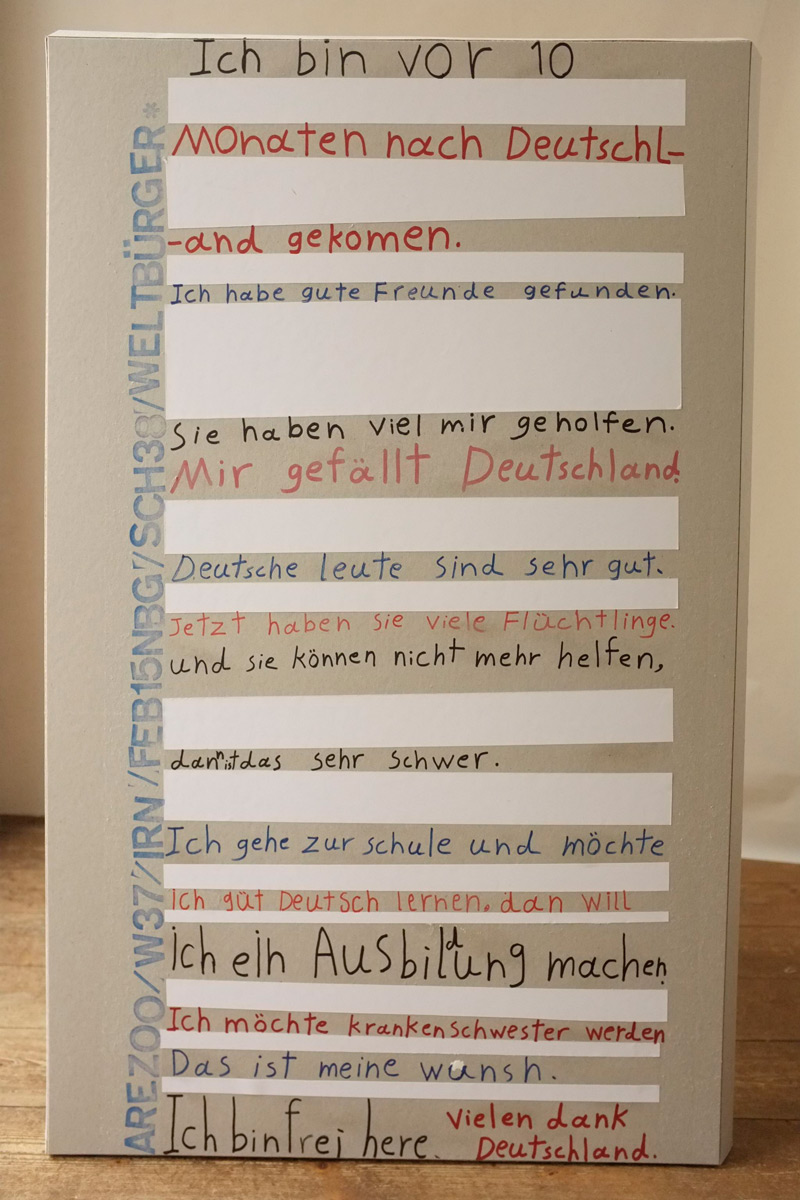 Ich bin vor 10
Monaten nach Deutschl-
-and gekomen.
Ich habe gute Freunde gefunden.
Sie haben viel mir geholfen.
Mir gefällt Deutschland.
Deutsche leute sind sehr gut.
Jetzt haben sie viele Flüchtlinge.
und sie können nicht mehr helfen,
dann ist das sehr schwer.
Ich gehe zur schule und möchte
ich güt Deutsch lernen. dan will
ich ein Ausbildung machen.
Ich möchte krankenschwester werden
Das ist meine wunsh.
Ich bin frei here. Vielen dank
Deutschland.
AREZOO/W37/IRN/FEB15NBG/SCH38/WELTBÜRGER*